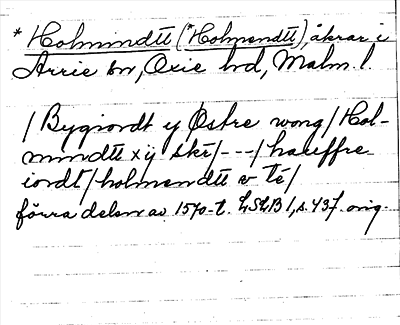 * Holmindtt (*Holmendtt), åkrar i
Arrie sn, Oxie hd, Malm. l.
/ Bygiordt y Østre wong / Hol-
mindtt x ij skr / --- / hauffre-
iordt / holmendtt v te /
förra delen av 1570-t. LSLB 1, s. 437. orig.